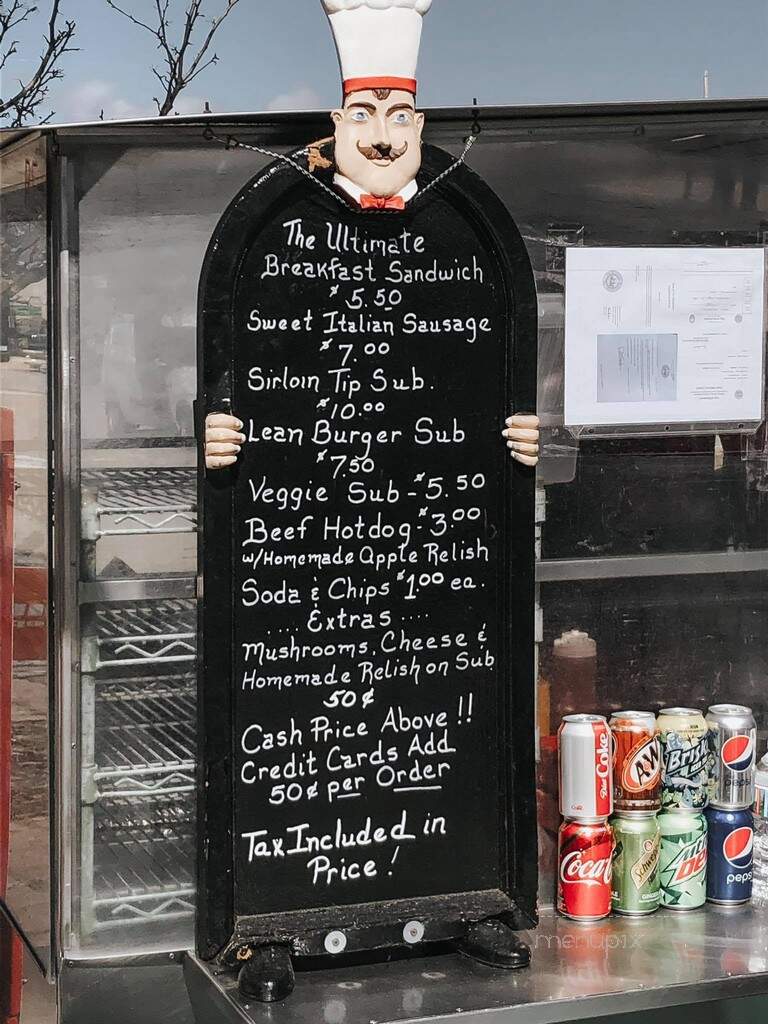 The Ultimate
Breakfast Sandwich
$5.50
Sweet Italian Sausage
$7.00
Sirloin Tip Sub.
$10.00
Lean Burger Sub
$7.50
Veggie Sub - $5.50
Beef Hotdog - $3.00
w/Homemade Apple Relish
Soda & Chips $1.00 ea.
.... Extras ....
Mushrooms, Cheese &
Homemade Relish on Sub
50¢
Cash Price Above!!
Credit Cards Add
50¢ per Order
Tax Included in
Price!
Diet Coke
A&W
Brisk
pepsi
Coca
Schweppes
Mtn Dew
pepsi
menupix